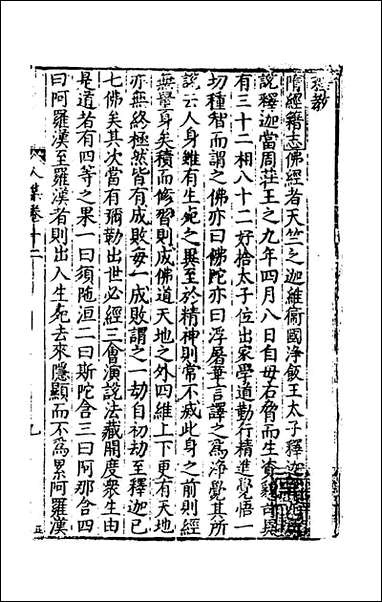 隋經籍志佛經者天竺之迦維衞國淨飯王太子釋迦
說釋迦當周莊王之九年四月八日自母右脅而生資貌竒異
有三十二相八十二好捨太子位出家學道勤行精進覺悟一
切種智而謂之佛亦曰佛陀亦曰浮屠華言譯之為淨覺其所
說云人身雖有生死之異至於精神則常不滅此身之前則經
無量身矣積而修習則成佛道天地之外四維上下更有天地
亦無終極然皆有成敗每一成敗謂之一劫自初劫至釋迦已
七佛矣其次當有彌勒出世必經三會演說法藏開度衆生由
是道者有四等之果一曰須陁洹二曰斯陀含三曰阿那含四
曰阿羅漢至羅漢者則出入生死去來隱顯而不為累阿羅漢
人集卷十二
五